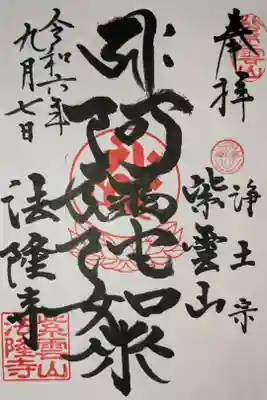 紫雲山
奉拝
浄土宗
紫雲山
阿弥陀如来
令和六年
九月七日
法隆寺
紫雲山
法隆寺